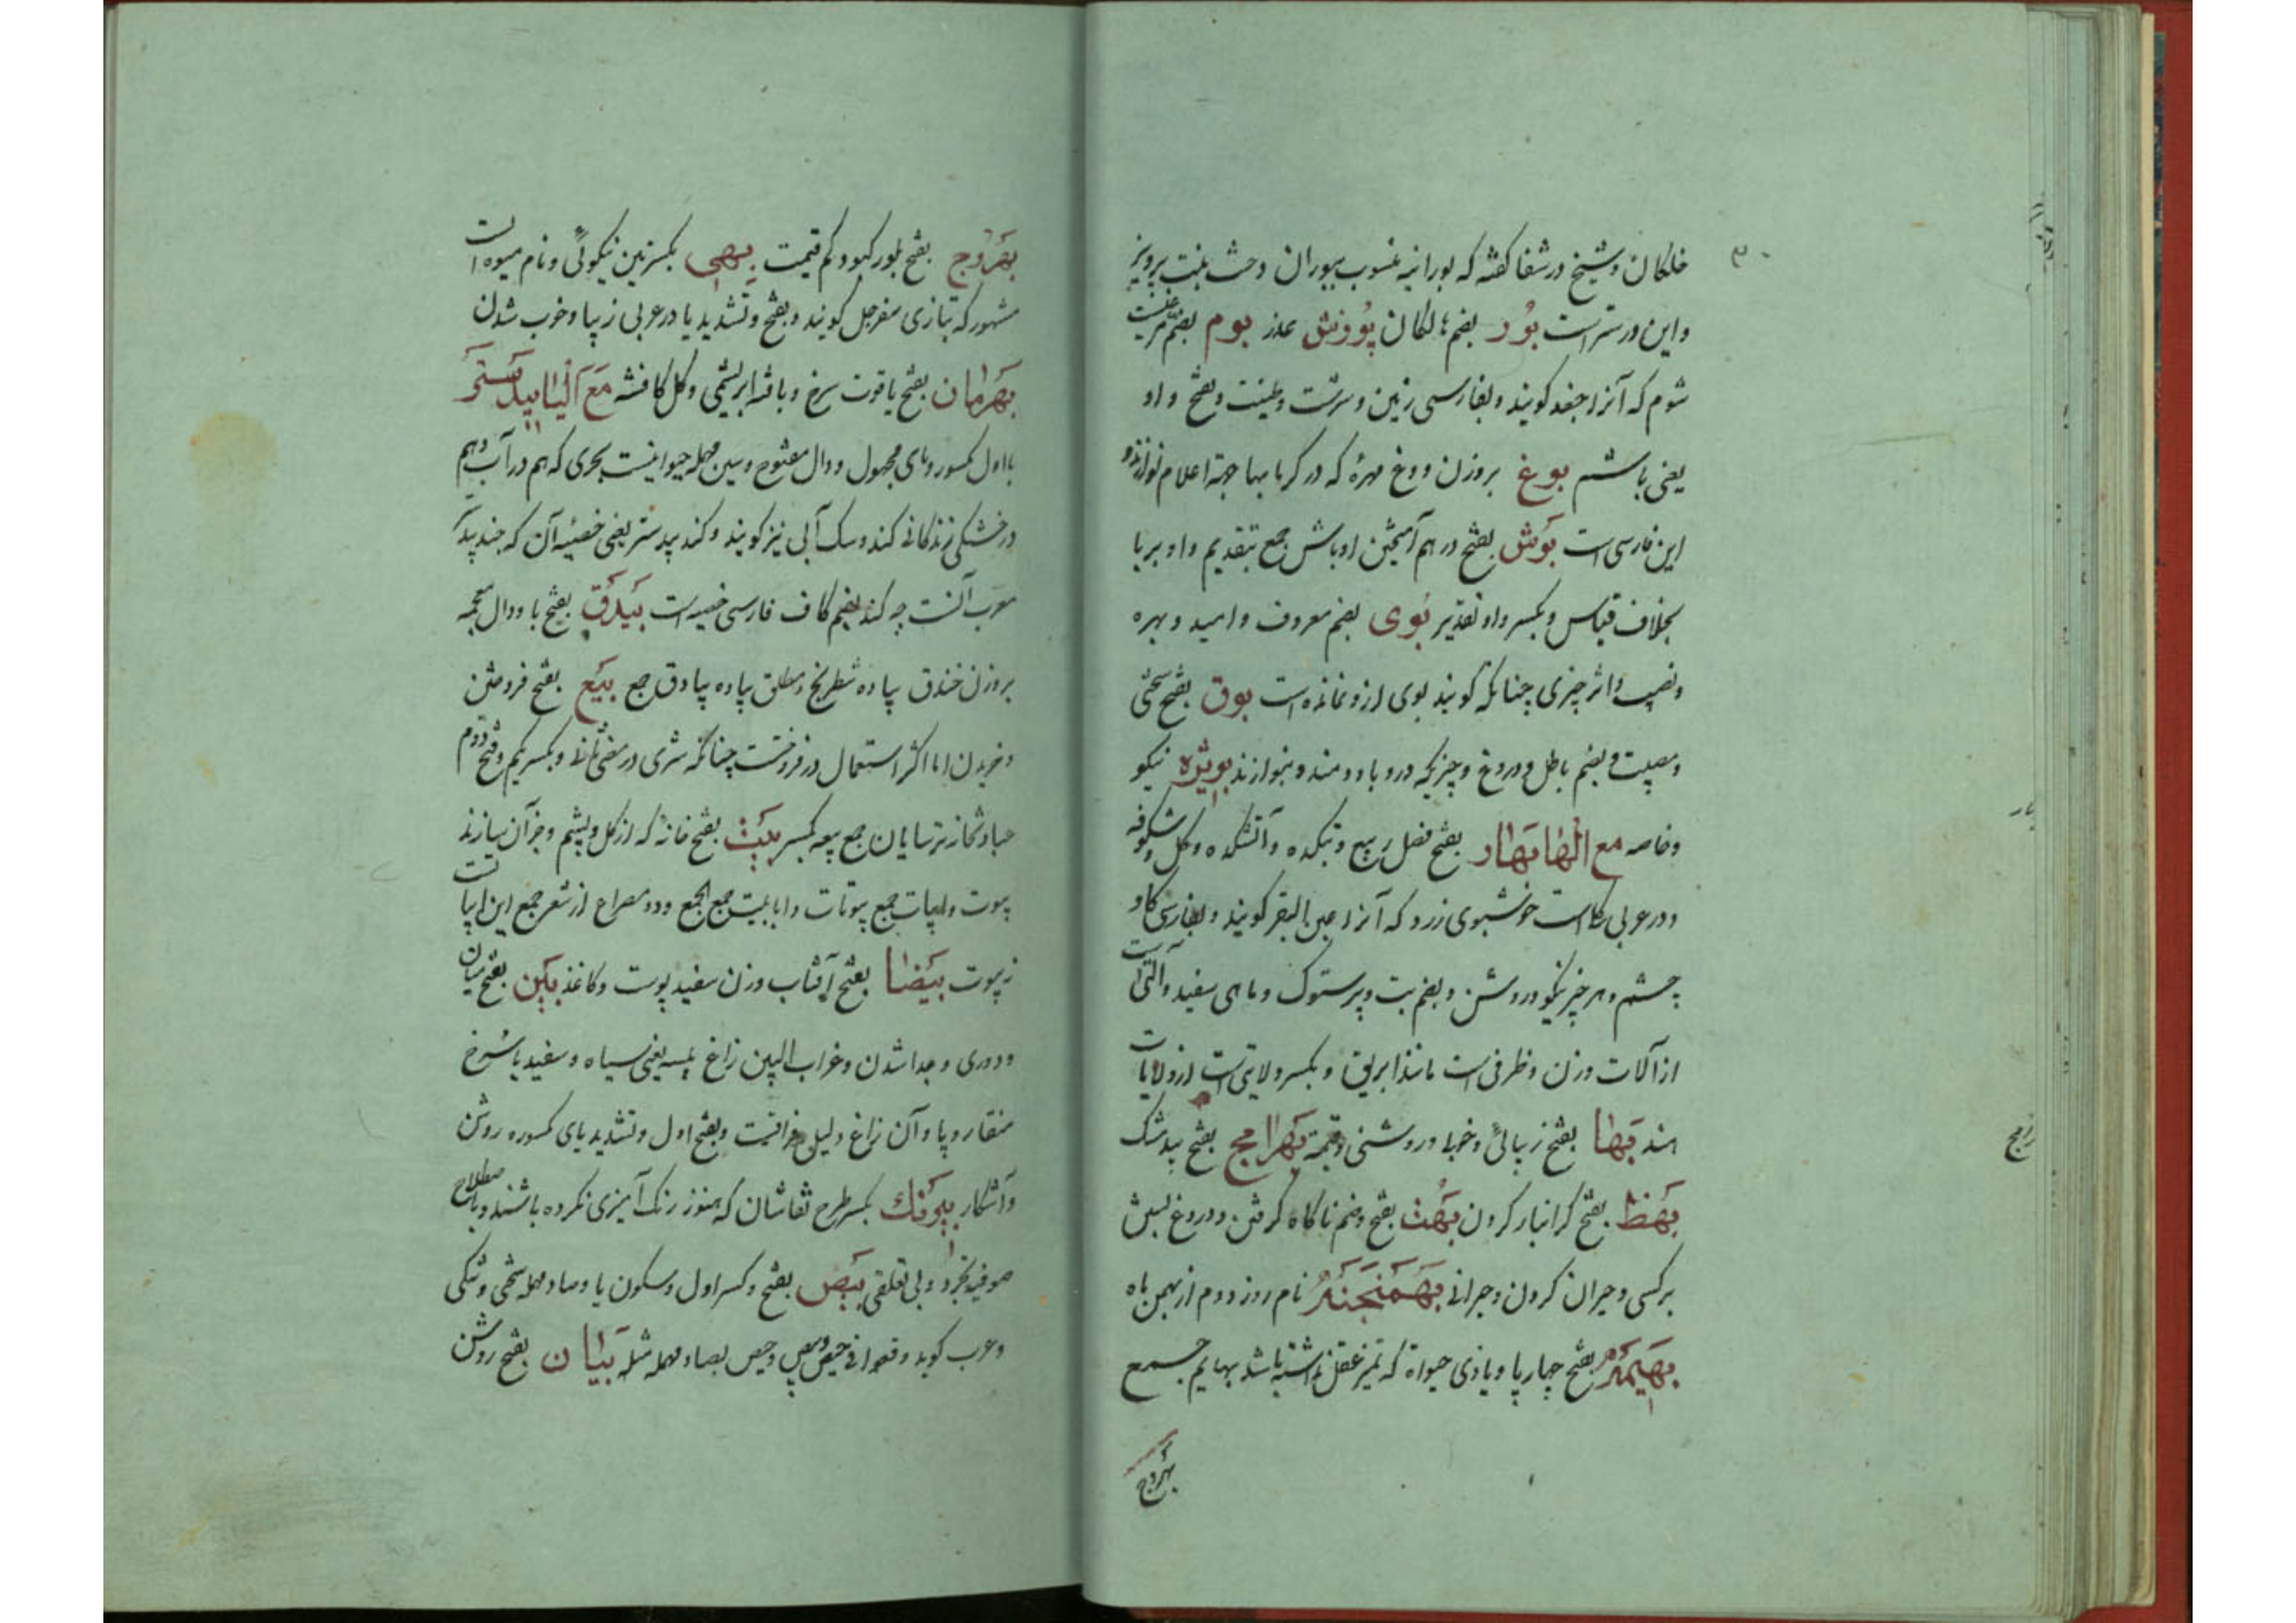 ۳۰
خلکان و شیخ در شفا گفته که بورانیه منسوب ببوران دخت بنت پرویز
و این درست‌تر است بُور بضم پوزش عذر بوم بضم
شوم که آنرا جغد گویند و بفارسی زمین و سرشت و طینت و بفتح و او
یعنی باشم بوغ بروزن دوغ مهرهٔ که در گرمابها جهة اعلام نوازند و
این فارسی است بَوش بفتح در هم آمیختن اوباش جمع بتقدیم واو بر با
بخلاف قیاس و بکسر واو تقدیر بُوی بضم معروف و امید و بهره
و نصیب و اثر چیزی چنانکه گویند بوی ازو نمانده است بوق بفتح سختی
و مصیبت و بضم باطل و دروغ و چیزیکه درو باد دمند و بنوازند بویژه نیکو
و خاصه مع الها بهار بفتح فصل ربیع و بتکده و آتشکده و گل و شکوفه
و در عربی گلی است خوشبوی زرد که آنرا عین البقر گویند و بفارسی گاو
چشم و هر چیز نیکو و روشن و بضم بت و پرستوک و ماهی سفید و آلتی است
از آلات وزن و ظرفی است مانند ابریق و بکسر ولایتی است از ولایات
هند بَها بفتح زیبائی و خوبی و روشنی و قیمة بَهرامج بفتح بیدمشک
بَهظ بفتح گرانبار کردن بَهُت بفتح و ضم ناگاه گرفتن و دروغ بستن
بر کسی و حیران کردن و حیرانی بَهمَنجَنَه نام روز دوم از بهمن ماه
بَهیمَه بفتح چهارپا و یا ذی حیوة که تمیز عقل نداشته باشد بهایم جمع
بهروج
بَهرُوج بفتح بلور کبود و کم قیمت بِهی بکسرتین نیکوئی و نام میوه است
مشهور که بتازی سفرجل گویند و بفتح و تشدید یا در عربی زیبا و خوب شدن
بَهرمان بفتح یاقوت سرخ و بافته ابریشمی و گل کافشه مَع الیا بیدستر
با اول کسور و یای مجهول و دال مفتوح و سین مهمله حیوانیست بحری که هم در آب و هم
در خشکی زندگانی کند و سک آبی نیز گویند و گند بیدستر یعنی خصیهٔ آن که جند بیدستر
معرب آنست چه گند بضم کاف فارسی خصیه است بَیذَق بفتح با و دال معجمه
بروزن خندق پیاده شطرنج و مطلق پیاده بیادق جمع بَیع بفتح فروختن
و خریدن اما اکثر استعمال در فروخت چنانکه شری در و بکسر یکم و فتح دوم
عبادتخانه ترسایان جمع بیعه بکسر بَیت بفتح خانه که از گل و پشم و جز آن سازند
بیوت و ابیات جمع بیوتات و ابابیت جمع الجمع و دو مصراع از شعر جمع این ابیات است
نه بیوت بَیضا بفتح آفتاب و زن سفید پوست و کاغذ بَین بفتح میان
و دوری و جدا شدن و غراب البین زاغ پیسه یعنی سیاه و سفید یا سُرخ
منقار و پا و آن زاغ دلیل فراقست و بفتح اول و تشدید یای کسوره روشن
و آشکار بیرَنک بکسر طرح نقاشان که هنوز رنک آمیزی نکرده باشند و باصطلاح
صوفیه تجرد و بی تعلقی بَیص بفتح و کسر اول و سکون یا و صاد مهمله سختی و تنگی
و عرب گوید وقعوا فی حیص و بیص و حیص بصاد مهمله مثله بَیان بفتح روشن